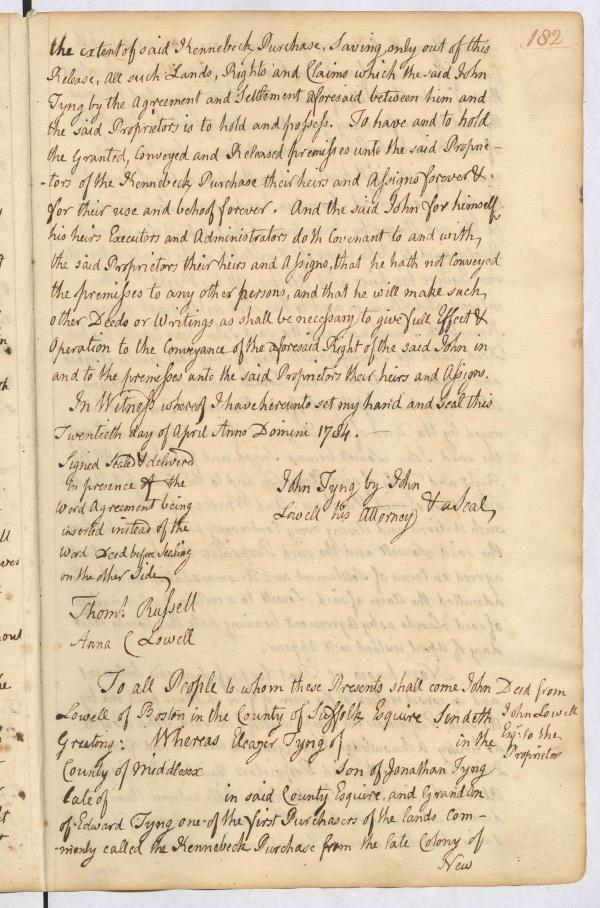 182
the extent of said Kennebeck Purchase, Saving only out of this
Release, all such Lands, Rights and Claims which the said John
Tyng by the Agreement and Settlement aforesaid between him and
the said Proprietors is to hold and possess. To have and to hold
the Granted, Conveyed and Released premisses unto the said Proprie-
-tors of the Kennebeck Purchase their heirs and Assigns forever &.
for their use and behoof forever. And the said John for himself
his heirs Executors and Administrators doth Covenant to and with,
the said Proprietors their heirs and Assigns, that he hath not Conveyed
the premisses to any other persons, and that he will make such,
other Deeds or Writings as shall be necessary to give full Effect &
Operation to the Conveyance of the aforesaid Right of the said John in
and to the premisses unto the said Proprietors their heirs and Assigns.
In Witness whereof I have hereunto set my hand and seal this
Twentieth day of April Anno Domini 1784. —
Signed Sealed & deliverd
in presence of the
Word Agreement being
inserted instead of the
Word Deed before Sealing
on the other side,
John Tyng by John
Lowell his Attorney & a Seal,
Thoms. Russell
Anna C Lowell
To all People to whom these Presents shall come John
Lowell of Boston in the County of Suffolk Esquire Sendeth
Greeting: Whereas Eleazer Tyng of in the
County of Middlesex son of Jonathan Tyng
late of in said County Esquire, and Grandson
of Edward Tyng one of the first Purchasers of the lands com-
-monly called the Kennebeck Purchase from the late Colony of
New
Deed from
John Lowell
Esqr. to the
Proprietors